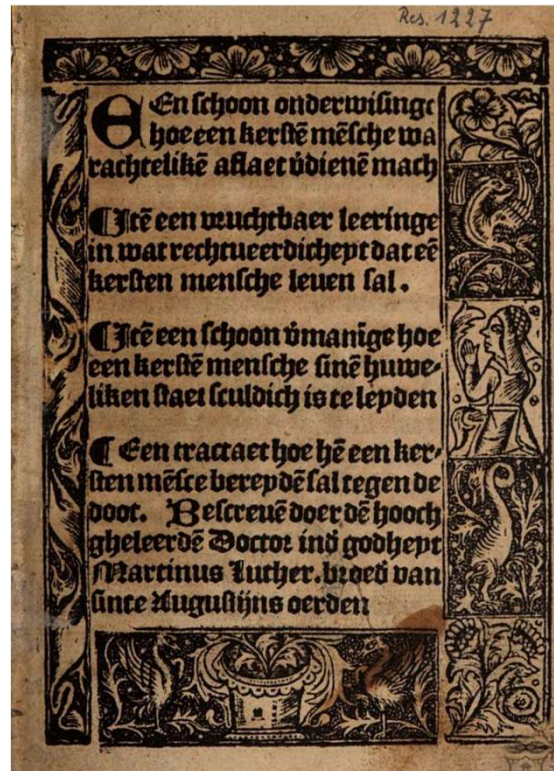 Res. 1227
EEn schoon onderwisinge
hoe een kerstē mēsche wa
rachtelikē aflaet v̄dienē mach
¶ Itē een vruchtbaer leeringe
in wat rechtueerdicheyt dat eē
kersten mensche leuen sal.
¶ Itē een schoon v̄manīge hoe
een kerstē mensche sinē huwe⸗
liken staet sculdich is te leyden
¶ Een tractaet hoe hē een ker⸗
sten mēsce bereydē sal tegen de
doot. Bescreuē doer dē hooch
gheleerdē Doctor ind̄ godheyt
Martinus Luther. broed̄ van
sinte Augustijns oerden